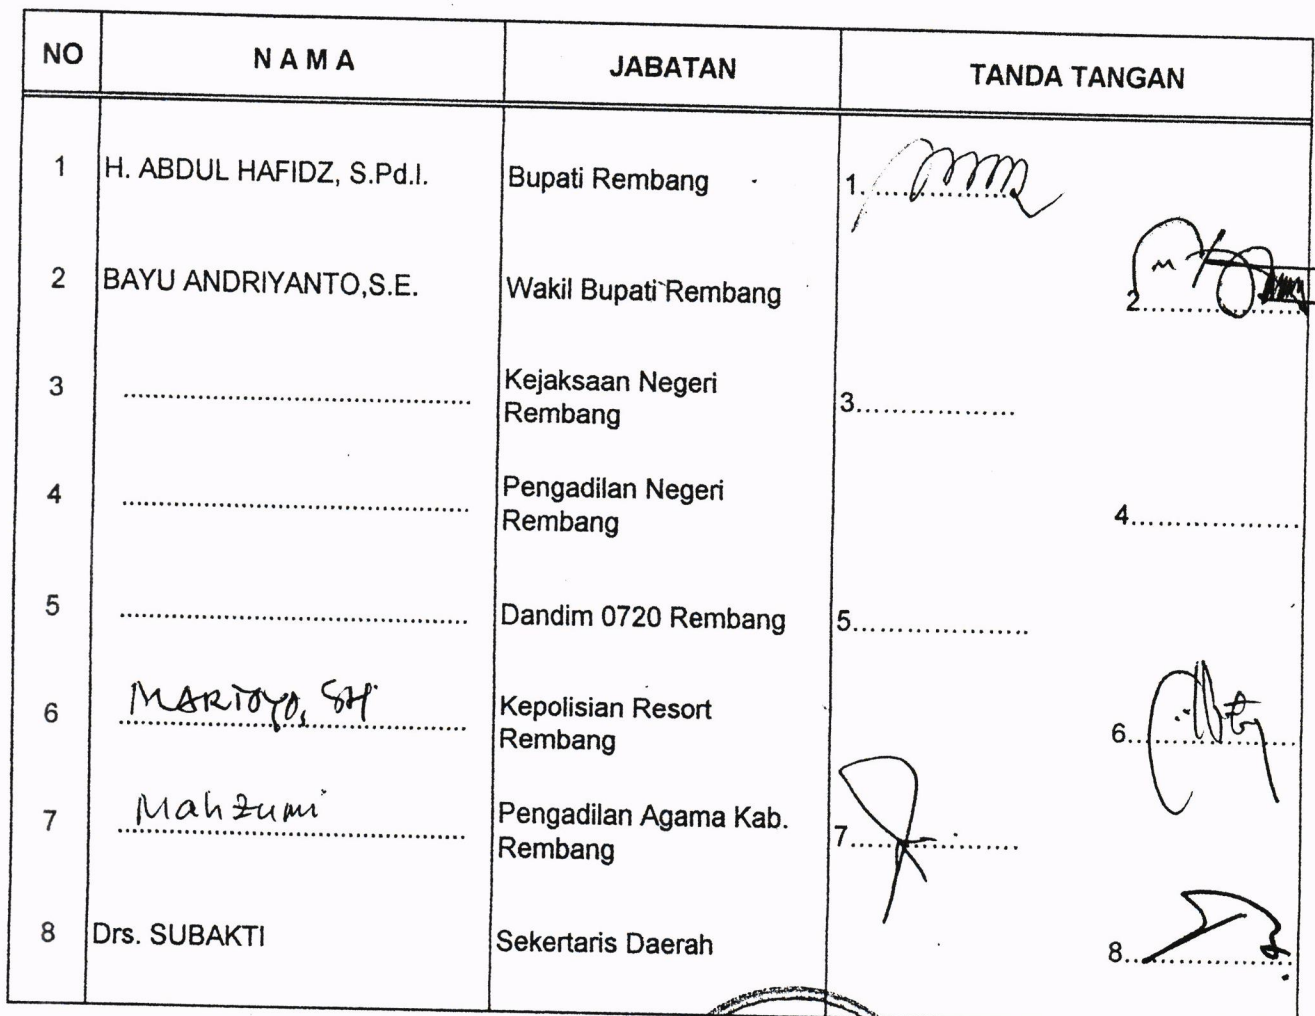 NO N A M A JABATAN TANDA TANGAN
1 H. ABDUL HAFIDZ, S.Pd.I. Bupati Rembang 1....................
2 BAYU ANDRIYANTO,S.E. Wakil Bupati Rembang 2....................
3 .......................................... Kejaksaan Negeri
Rembang 3....................
4 .......................................... Pengadilan Negeri
Rembang 4....................
5 .......................................... Dandim 0720 Rembang 5....................
6 MARTOYO, SH Kepolisian Resort
Rembang 6....................
7 Mahzumi Pengadilan Agama Kab.
Rembang 7....................
8 Drs. SUBAKTI Sekertaris Daerah 8....................